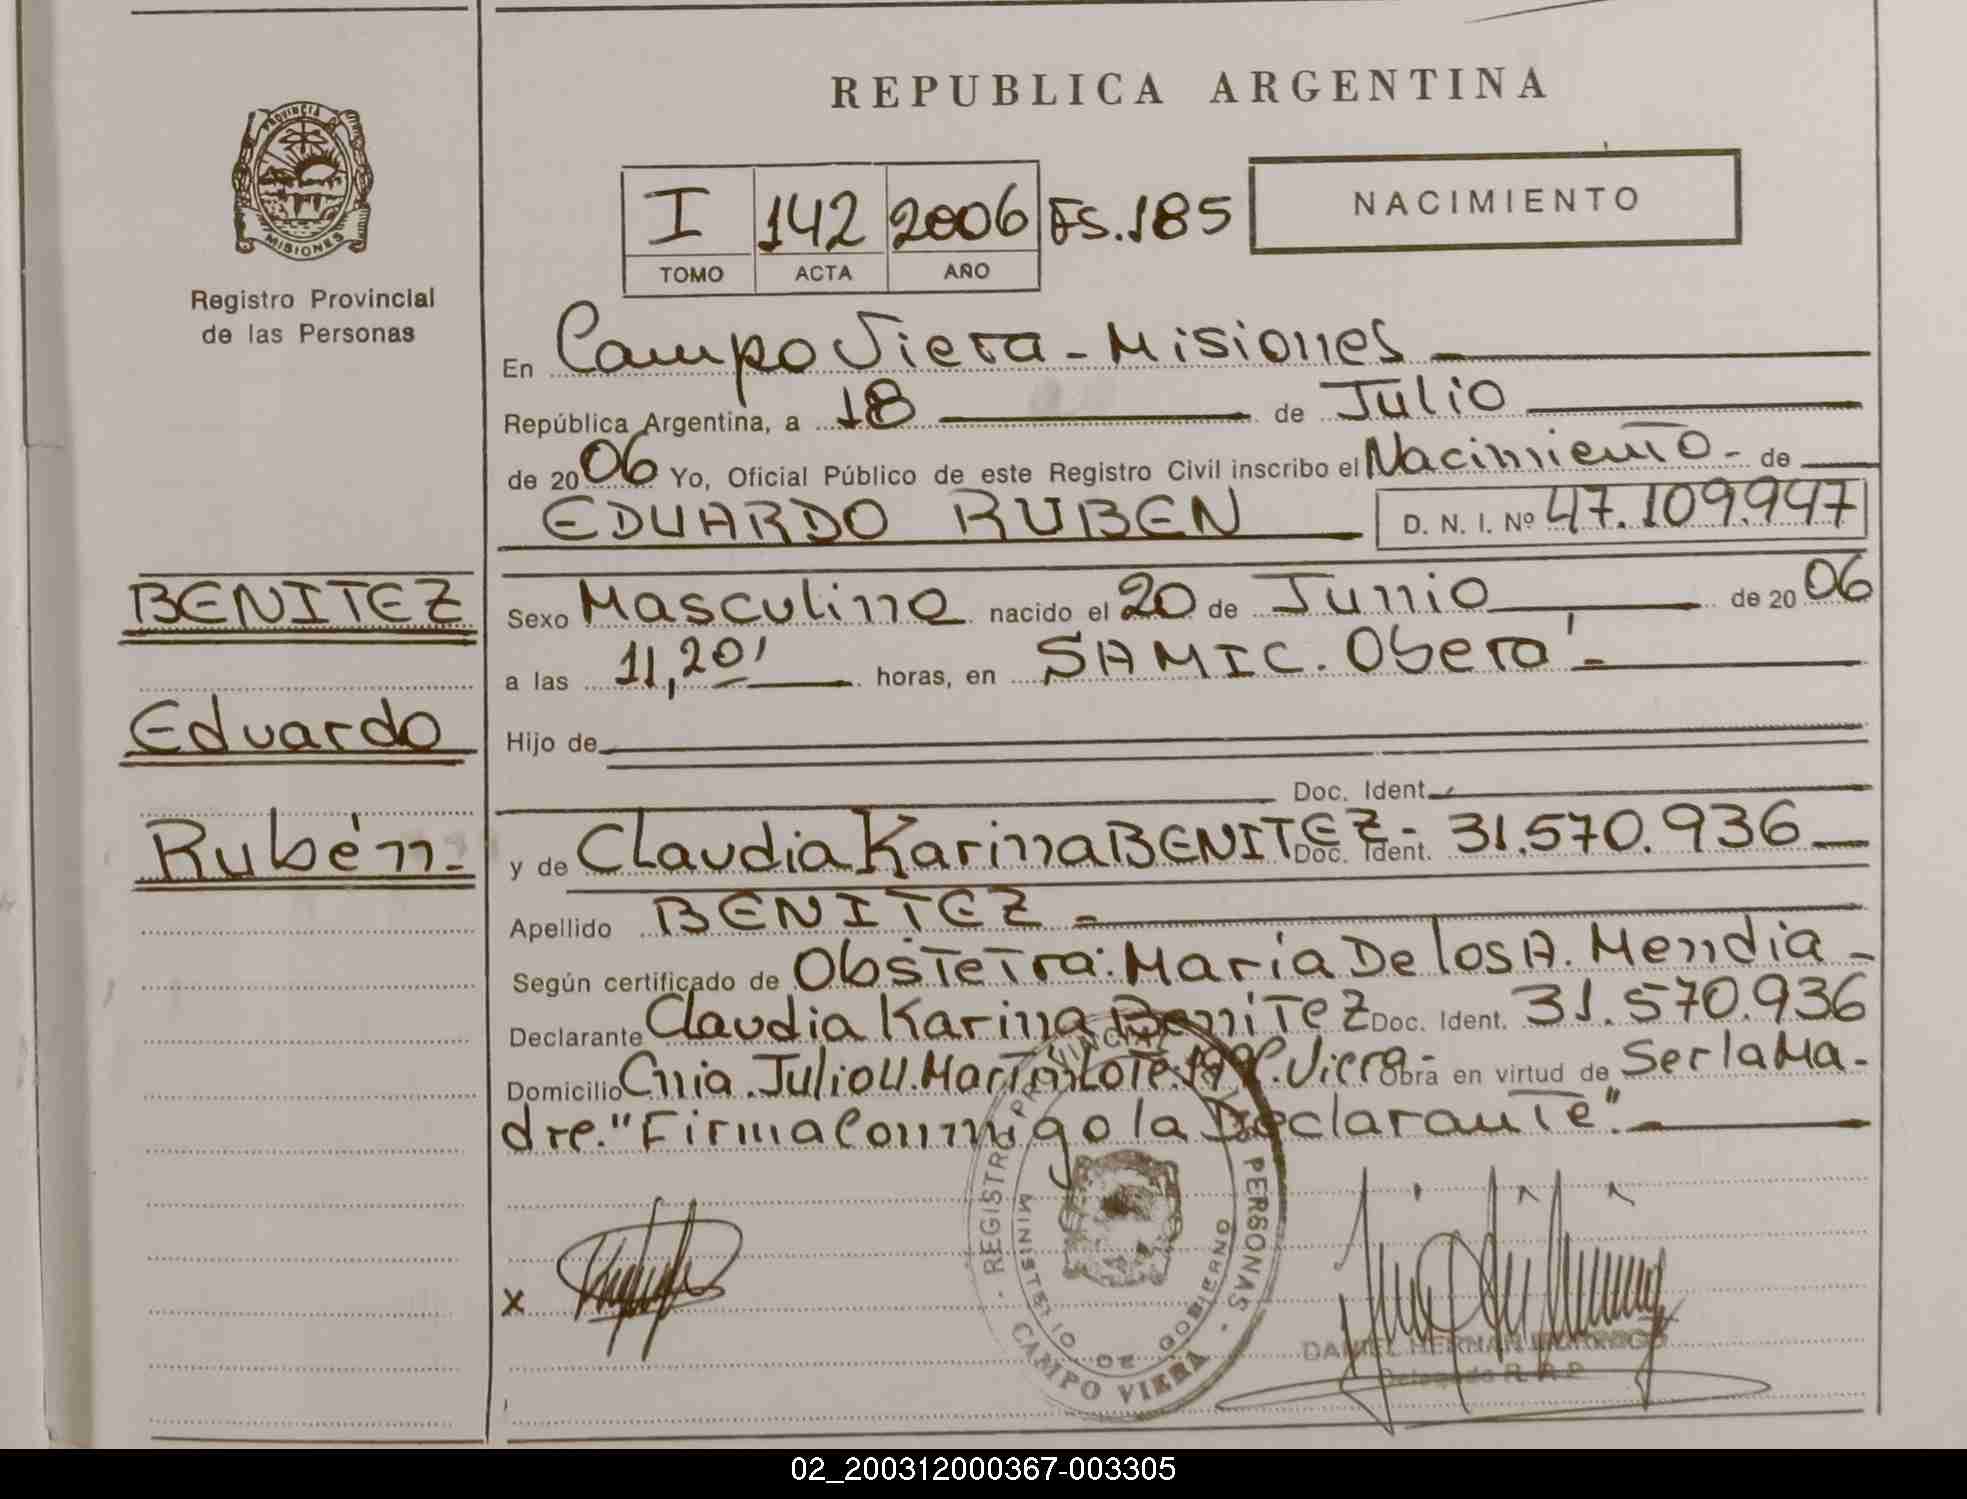 REPUBLICA ARGENTINA
PROVINCIA DE
MISIONES
Registro Provincial
de las Personas
I 142 2006 FS.185
TOMO ACTA AÑO
NACIMIENTO
En Campo Viera - Misiones
República Argentina, a 18 de Julio
de 2006 Yo, Oficial Público de este Registro Civil inscribo el Nacimiento - de
EDUARDO RUBEN D. N. I. Nº 47.109.947
BENITEZ
Eduardo
Rubén.-
Sexo Masculino nacido el 20 de Junio de 2006
a las 11,20' horas, en SAMIC. Oberá -
Hijo de
Doc. Ident.
y de Claudia Karina BENITEZ - Doc. Ident. 31.570.936
Apellido BENITEZ -
Según certificado de Obstetra: María De los A. Mendia -
Declarante Claudia Karina Benitez Doc. Ident. 31.570.936
Domicilio Cnia. Julio U. Martin Lote. C. Viera - Obra en virtud de Ser la Ma-
dre. "Firma Conmigo la Declarante".
x
REGISTRO PROVINCIAL PERSONAS
MINISTERIO DE GOBIERNO
CAMPO VIERA
DANIEL HERNAN
Delegado R. P. P.
02_200312000367-003305